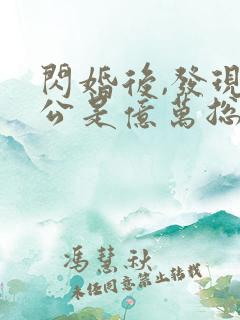 閃婚後,發現
公是億萬總
馮慧秋
未經同意禁止轉載